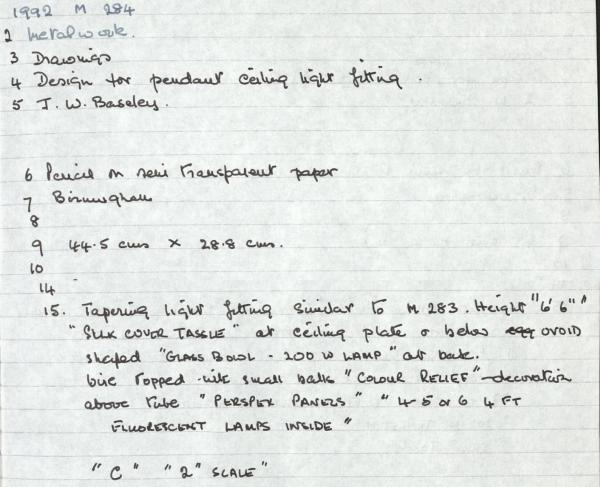 1992 M 284
2 Metalwork.
3 Drawings
4 Design for pendant ceiling light fitting.
5 J. W. Baseley.
6 Pencil on semi transparent paper
7 Birmingham
8
9 44.5 cms × 28.8 cms.
10
14
15. Tapering light fitting similar to M 283. Height "6' 6""
"SILK COVER TASSLE" at ceiling plate & below egg OVOID
shaped "GLASS BOWL - 200 W LAMP" at base.
topped with small balls "COLOUR RELIEF" decoration
above tube "PERSPEX PANELS" "4 5 or 6 4 FT
FLUORESCENT LAMPS INSIDE"
"C" "2" SCALE"